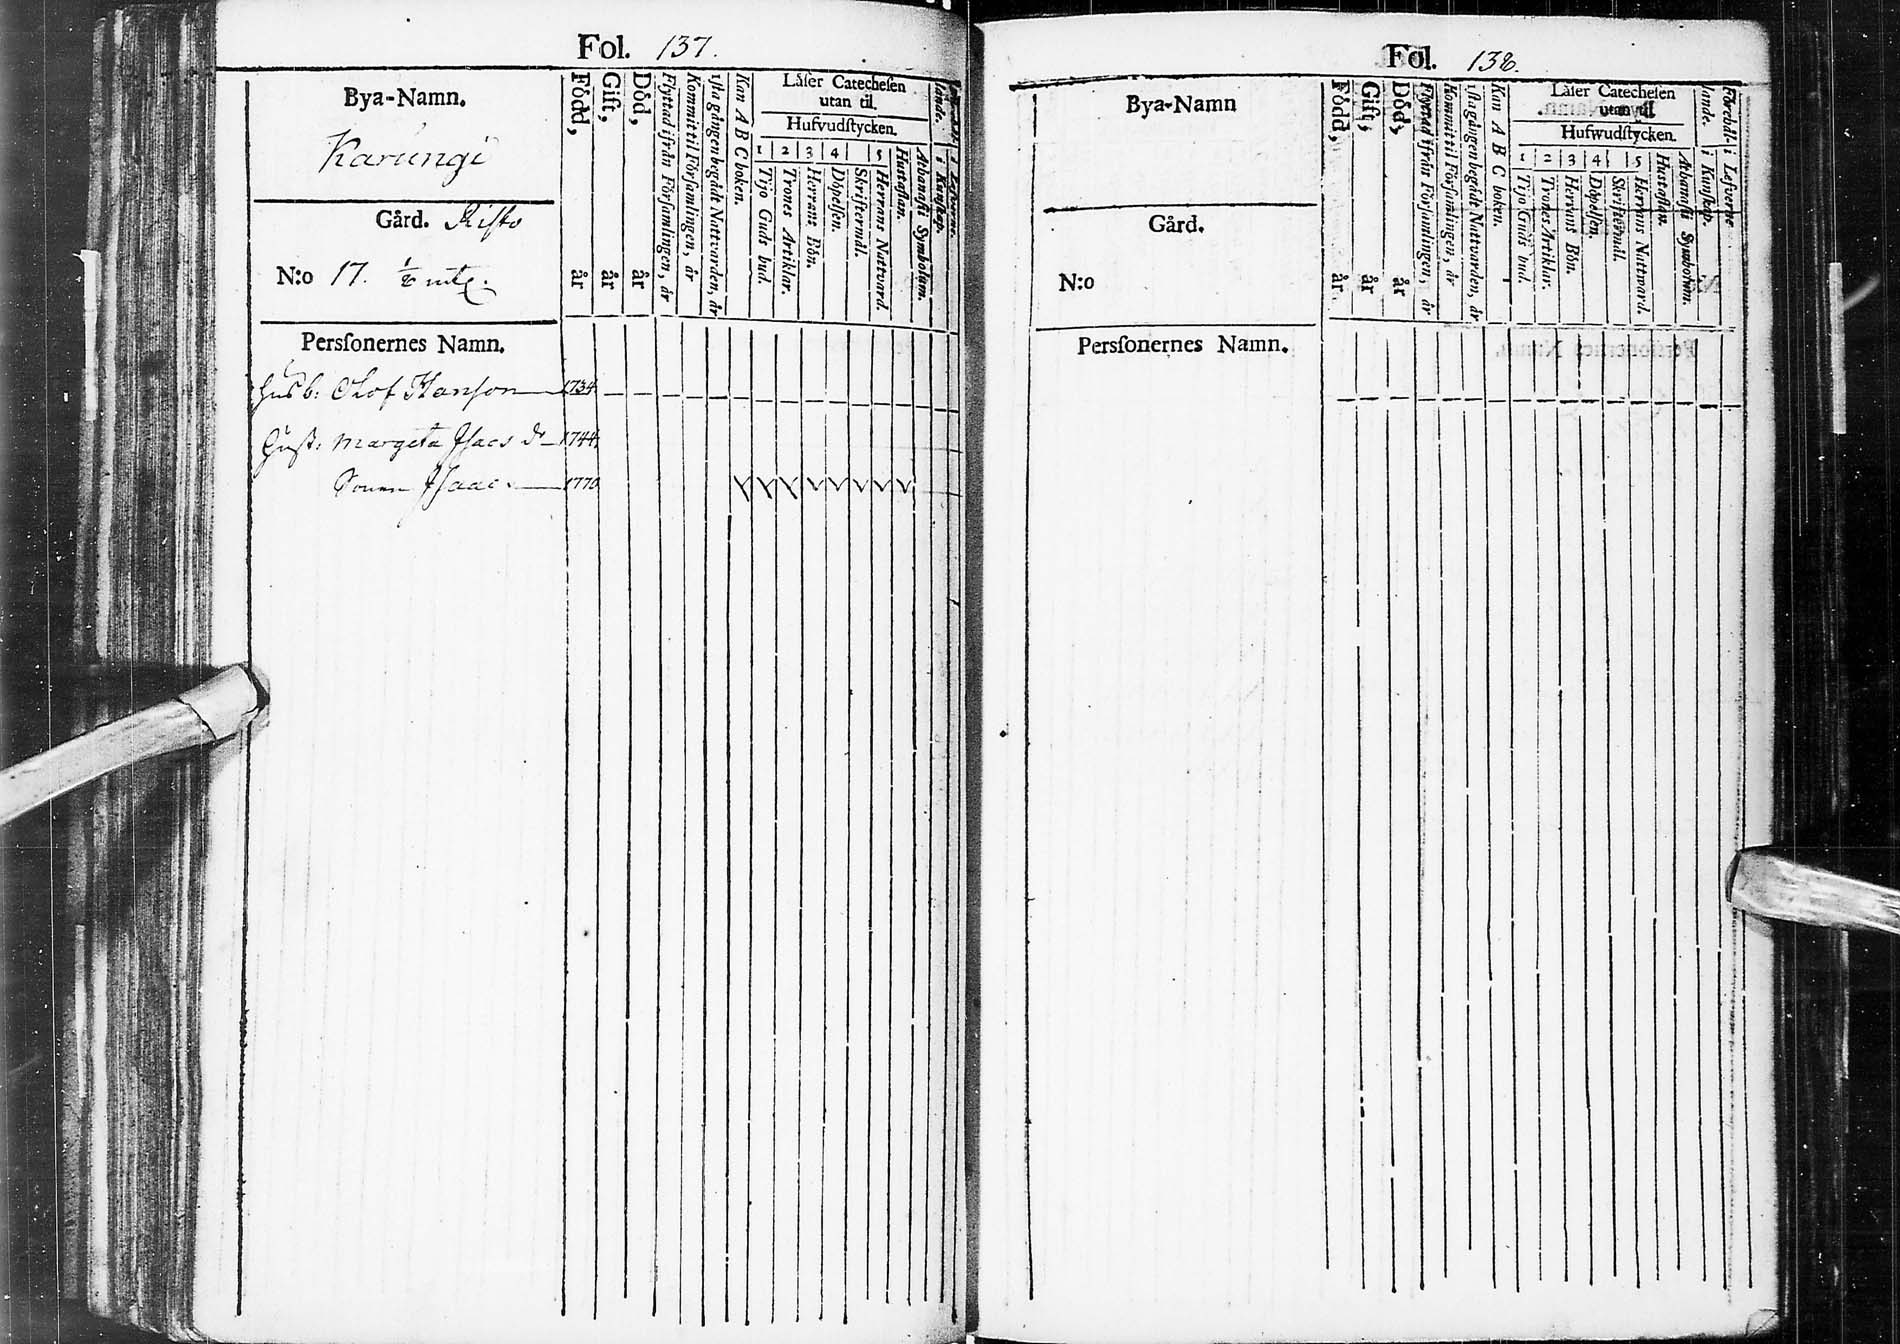 Fol. 137.
Bya-Namn.
Karungi
Gård. Risto
N:o 17. ½ mtl.
Perſonernes Namn.
Född, år
Gift, år
Död, år
Flyttad ifrån Förſamlingen, år
Kommit til Förſamlingen, år
gången begådt Nattvarden, år
Kan A B C boken.
Läſer Catecheſen
utan til.
Hufvudſtycken.
1 2 3 4 5
Tijo Guds bud.
Trones Artiklar.
Herrans Bön.
Döpelſen.
Skriftermål.
Herrans Nattvard.
Huſtaflan.
Athanaſii Symbolum.
lande. i Kunſkap.
i Lefverne.
Husb: Olof Hanſon 1734
Huſt: Margeta Iſacs dr 1744.
Sonen Iſaac 1770
Fol. 138.
Bya-Namn
Gård.
N:o
Perſſonernes Namn.
Född, år
Gift, år
Död, år
Flyttad ifrån Förſamlingen, år
Kommit til Förſamlingen, år
gången begådt Nattvarden, år
Kan A B C boken.
Läſer Catecheſen
utan til.
Hufwudſtycken.
1 2 3 4 5
Tijo Guds bud.
Trones Artiklar.
Herrans Bön.
Döpelſen.
Skriftermål.
Herrans Nattvard.
Huſtaflan.
Athanaſii Symbolum.
lande. i Kunſkap.
Förehål- i Lefverne